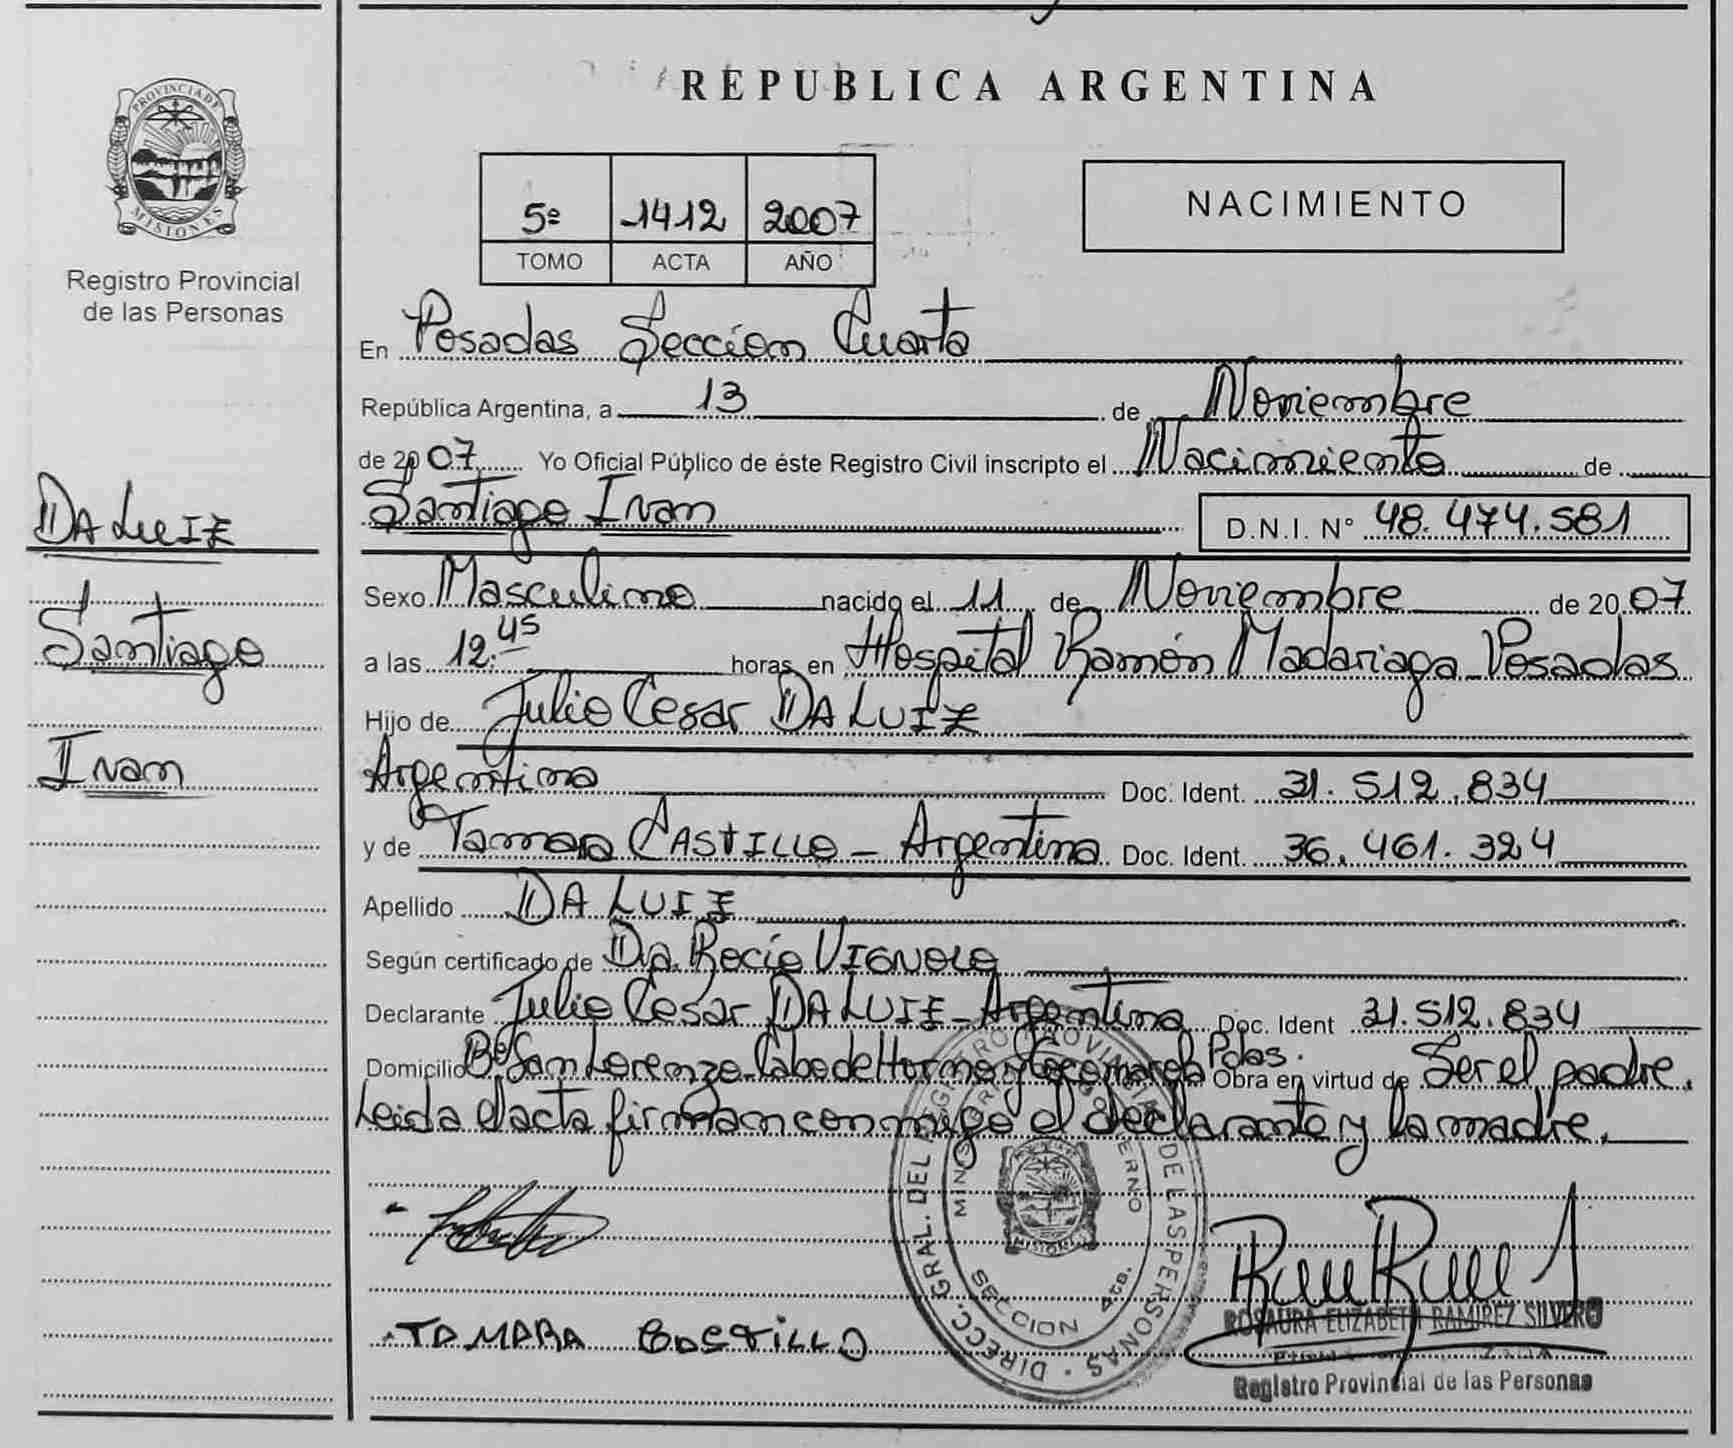 REPUBLICA ARGENTINA
PROVINCIA DE
MISIONES
Registro Provincial
de las Personas
5º 1412 2007
TOMO ACTA AÑO
NACIMIENTO
En Posadas Sección Cuarta
República Argentina, a 13 de Noviembre
de 2007 Yo Oficial Público de éste Registro Civil inscripto el Nacimiento de
Santiago Ivan D.N.I. N° 48.474.581
DA LUIZ
Santiago
Ivan
Sexo Masculino nacido el 11 de Noviembre de 2007
a las 12:45 horas en Hospital Ramón Madariaga Posadas
Hijo de Julio Cesar DA LUIZ
Argentina Doc. Ident. 31.512.834
y de Tamara CASTILLO - Argentina Doc. Ident. 36.461.324
Apellido DA LUIZ
Según certificado de Dra. Rocío VIGNOLO
Declarante Julio Cesar DA LUIZ - Argentina Doc. Ident 31.512.834
Domicilio Bº San Lorenzo-Cabo de Hornos y Pdas. Obra en virtud de Ser el padre.
Leida el acta firman conmigo el declarante y la madre.
DIRECC. GRAL. DEL REGISTRO PROVINCIAL DE LAS PERSONAS
SECCION 4ta.
MISIONES
TAMARA CASTILLO
ROSAURA ELIZABETH RAMIREZ SILVERO
Registro Provincial de las Personas